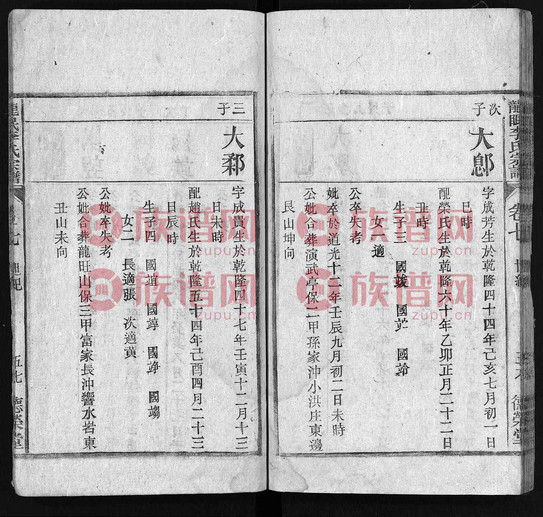 龍眠李氏宗譜
卷七
德榮堂
次子
大郎
字成芳生於乾隆四十四年己亥七月初一日
巳時
配榮氏生於乾隆六十年乙卯正月二十二日
丑時
生子三 國
女一適
公妣卒於道光十二年壬辰九月初二日未時
公妣合葬演武亭保二甲孫家沖小洪庄東邊
艮山坤向
三子
大鄴
字成賓生於乾隆四十七年壬寅十二月十三
日未時
配趙氏生於乾隆五十四年己酉四月二十三
日辰時
生子四 國 國竫 國竫 國
女二 長適張 次適黃
公妣卒失考
公妣合葬龍旺山保三甲富家長沖響水岩東
丑山未向
龍眠李氏宗譜
五七
德榮堂
族譜网
zupu.cn